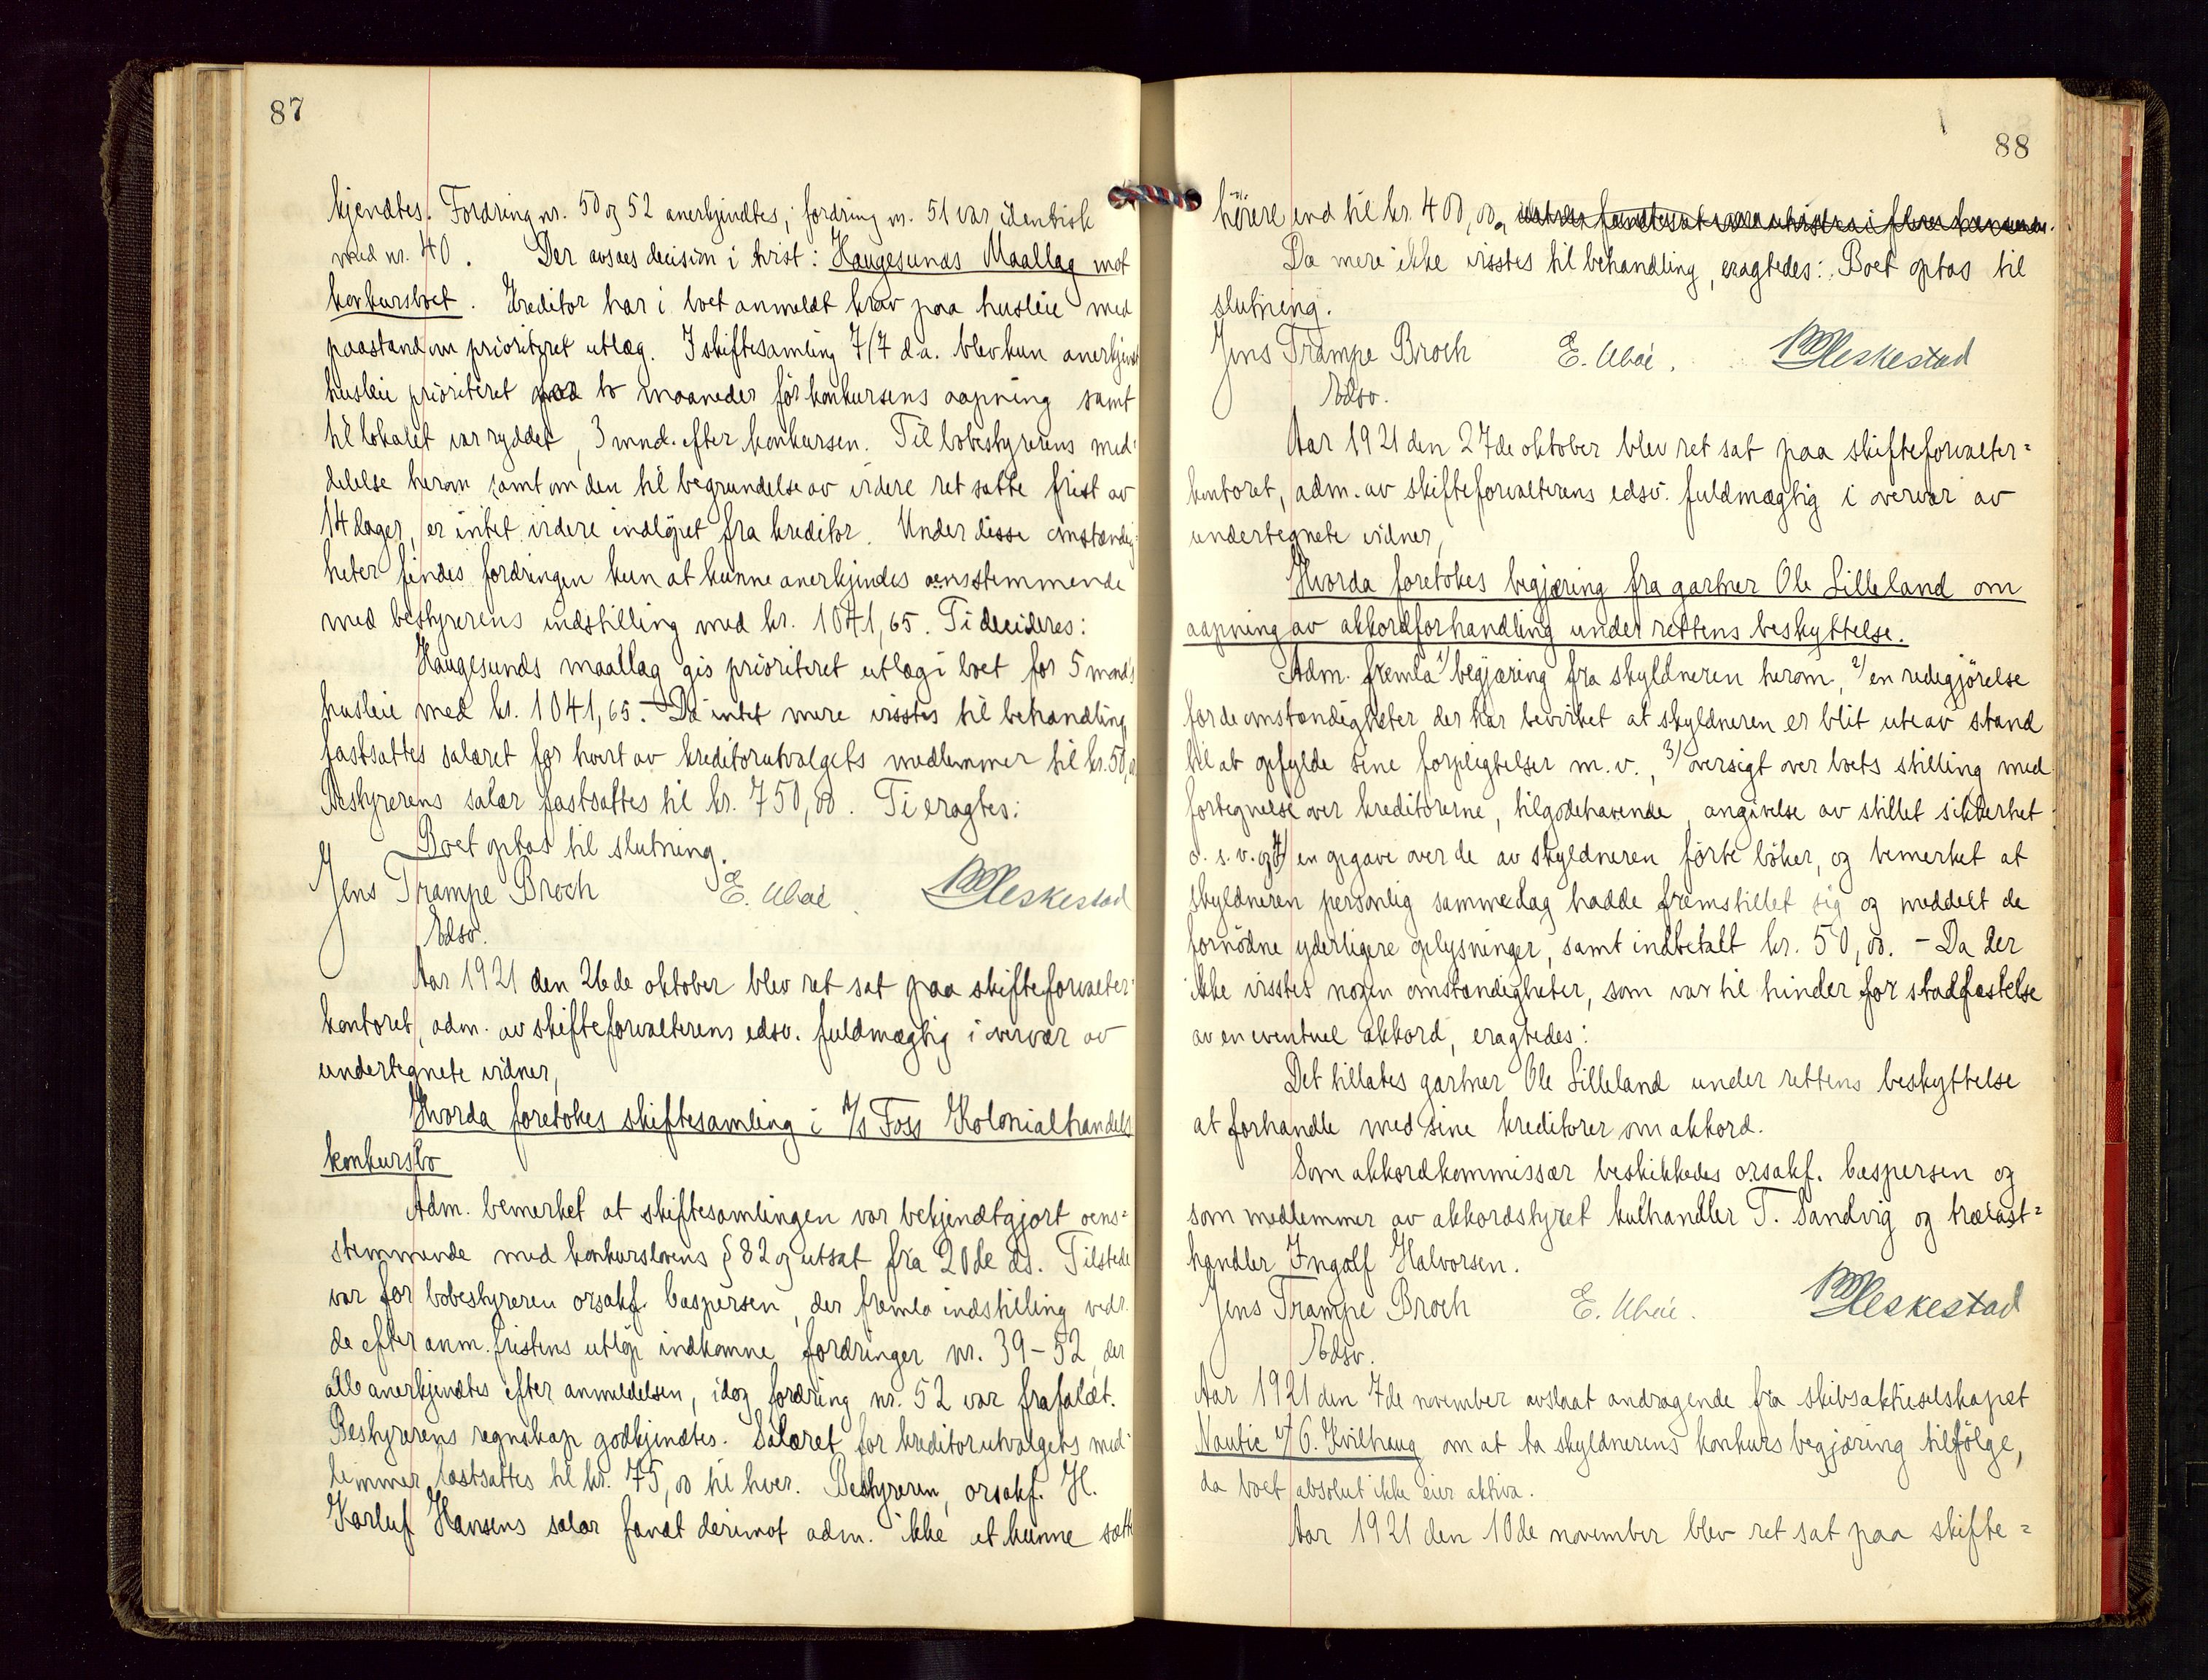 87
kjendtes. Fordring nr. 50 og 52 anerkjendtes; fordring nr. 51 var identisk
med nr. 40. Der avsaes decision i tvist: Haugesunds Maallag mot
konkursboet. Kreditor har i boet anmeldt krav paa husleie med
paastand om prioritert utlæg. I skiftesamling 7/7 d.a. blev kun anerkjendt
husleie prioriteret to maaneder før konkursens aapning samt
til lokalet var ryddet, 3 mnd. efter konkursen. Til bobestyrerens med-
delelse herom samt om den til begrundelse av videre ret satte frist av
14 dager, er intet videre indløpet fra kreditor. Under disse omstændig-
heter findes fordringen kun at kunne anerkjendes overensstemmende
med bestyrerens indstilling med kr. 1041,65. Ti decideres:
Haugesunds maallag gis prioriteret utlæg i boet for 5 mnds
husleie med kr. 1041,65. - Da intet mere visstes til behandling,
fastsattes salæret for hvert av kreditorutvalgets medlemmer til kr. 50,00
Bestyrerens salær fastsattes til kr. 750,00. Ti eragtes:
Boet optas til slutning.
Jens Trampe Broch E. Ubøe. Heskestad
Edsv.
Aar 1921 den 26de oktober blev ret sat paa skifteforvalter-
kontoret, adm. av skifteforvalterens edsv. fuldmægtig i overvær av
undertegnete vidner,
Hvorda foretokes skiftesamling i A/S Foss Kolonialhandels
konkursbo
Adm. bemerket at skiftesamlingen var bekjendtgjort overens-
stemmende med konkurslovens § 82 og utsat fra 20de ds. Tilstede
var for bobestyreren orsakf. Caspersen, der fremla indstilling vedr.
de efter anm. fristens utløp indkomne fordringer nr. 39-52, der
alle anerkjendtes efter anmeldelsen, idog fordring nr. 52 var frafaldt.
Bestyrerens regnskap godkjendtes. Salæret for kreditorutvalgets med-
lemmer fastsattes til kr. 75,00 til hver. Bestyreren, orsakf. H.
Karluf Hansens salær fandt derimot adm. ikke at kunne sætte
88
høiere end til kr. 400,00.
Da mere ikke visstes til behandling, eragtedes: Boet optas til
slutning.
Jens Trampe Broch E. Ubøe. Heskestad
Edsv.
Aar 1921 den 27de oktober blev ret sat paa skifteforvalter-
kontoret, adm. av skifteforvalterens edsv. fuldmægtig i overvær av
undertegnete vidner,
Hvorda foretokes begjæring fra gartner Ole Lilleland om
aapning av akkordforhandling under rettens beskyttelse.
Adm. fremla 1/ begjæring fra skyldneren herom, 2/ en redegjørelse
for de omstændigheter der har bevirket at skyldneren er blit ute av stand
til at opfylde sine forpligtelser m.v., 3/ oversigt over boets stilling med
fortegnelse over kreditorerne, tilgodehavende, angivelse av stillet sikkerhet
o.s.v. og 4/ en opgave over de av skyldneren førte bøker, og bemerket at
skyldneren personlig samme dag hadde fremstillet sig og meddelt de
fornødne yderligere oplysninger, samt indbetalt kr. 50,00. - Da der
ikke visstes nogen omstændigheter, som var til hinder for stadfæstelse
av en eventuel akkord, eragtedes:
Det tillates gartner Ole Lilleland under rettens beskyttelse
at forhandle med sine kreditorer om akkord.
Som akkordkommissær beskikkedes orsakf. Caspersen og
som medlemmer av akkordstyret kulhandler T. Sandvig og trælast-
handler Ingolf Halvorsen.
Jens Trampe Broch E. Ubøe. Heskestad
Edsv.
Aar 1921 den 7de november avslaat andragende fra skibsaktieselskapet
Nautic v/ G. Kvilhaug om at ta skyldnerens konkursbegjæring tilfølge,
da boet absolut ikke eier aktiva.
Aar 1921 den 10de november blev ret sat paa skifte-